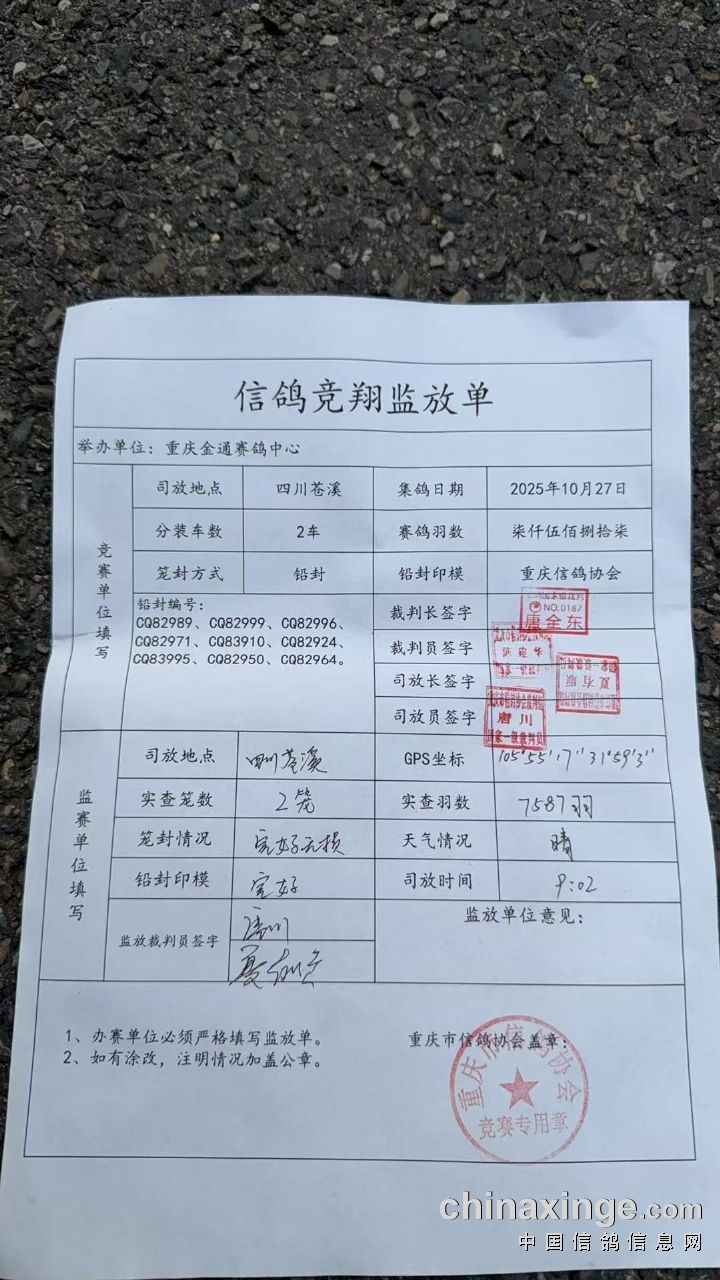 信鸽竞翔监放单
举办单位：重庆金通赛鸽中心
竞赛单位填写
司放地点 四川苍溪 集鸽日期 2025年10月27日
分装车数 2车 赛鸽羽数 柒仟伍佰捌拾柒
笼封方式 铅封 铅封印模 重庆信鸽协会
铅封编号：
CQ82989、CQ82999、CQ82996、
CQ82971、CQ83910、CQ82924、
CQ83995、CQ82950、CQ82964。
裁判长签字
NO.0187
唐全东
裁判员签字
司放长签字
夏有顺
司放员签字
唐川
国家一级裁判员
监赛单位填写
司放地点 四川苍溪 GPS坐标 105°55'17" 31°59'3"
实查笼数 2笼 实查羽数 7587羽
笼封情况 完好无损 天气情况 晴
铅封印模 完好 司放时间 9:02
监放裁判员签字 唐川
监放单位意见：
1、办赛单位必须严格填写监放单。
2、如有涂改，注明情况加盖公章。
重庆市信鸽协会盖章：
重庆市信鸽协会
竞赛专用章
chinaxinge.com
中国信鸽信息网